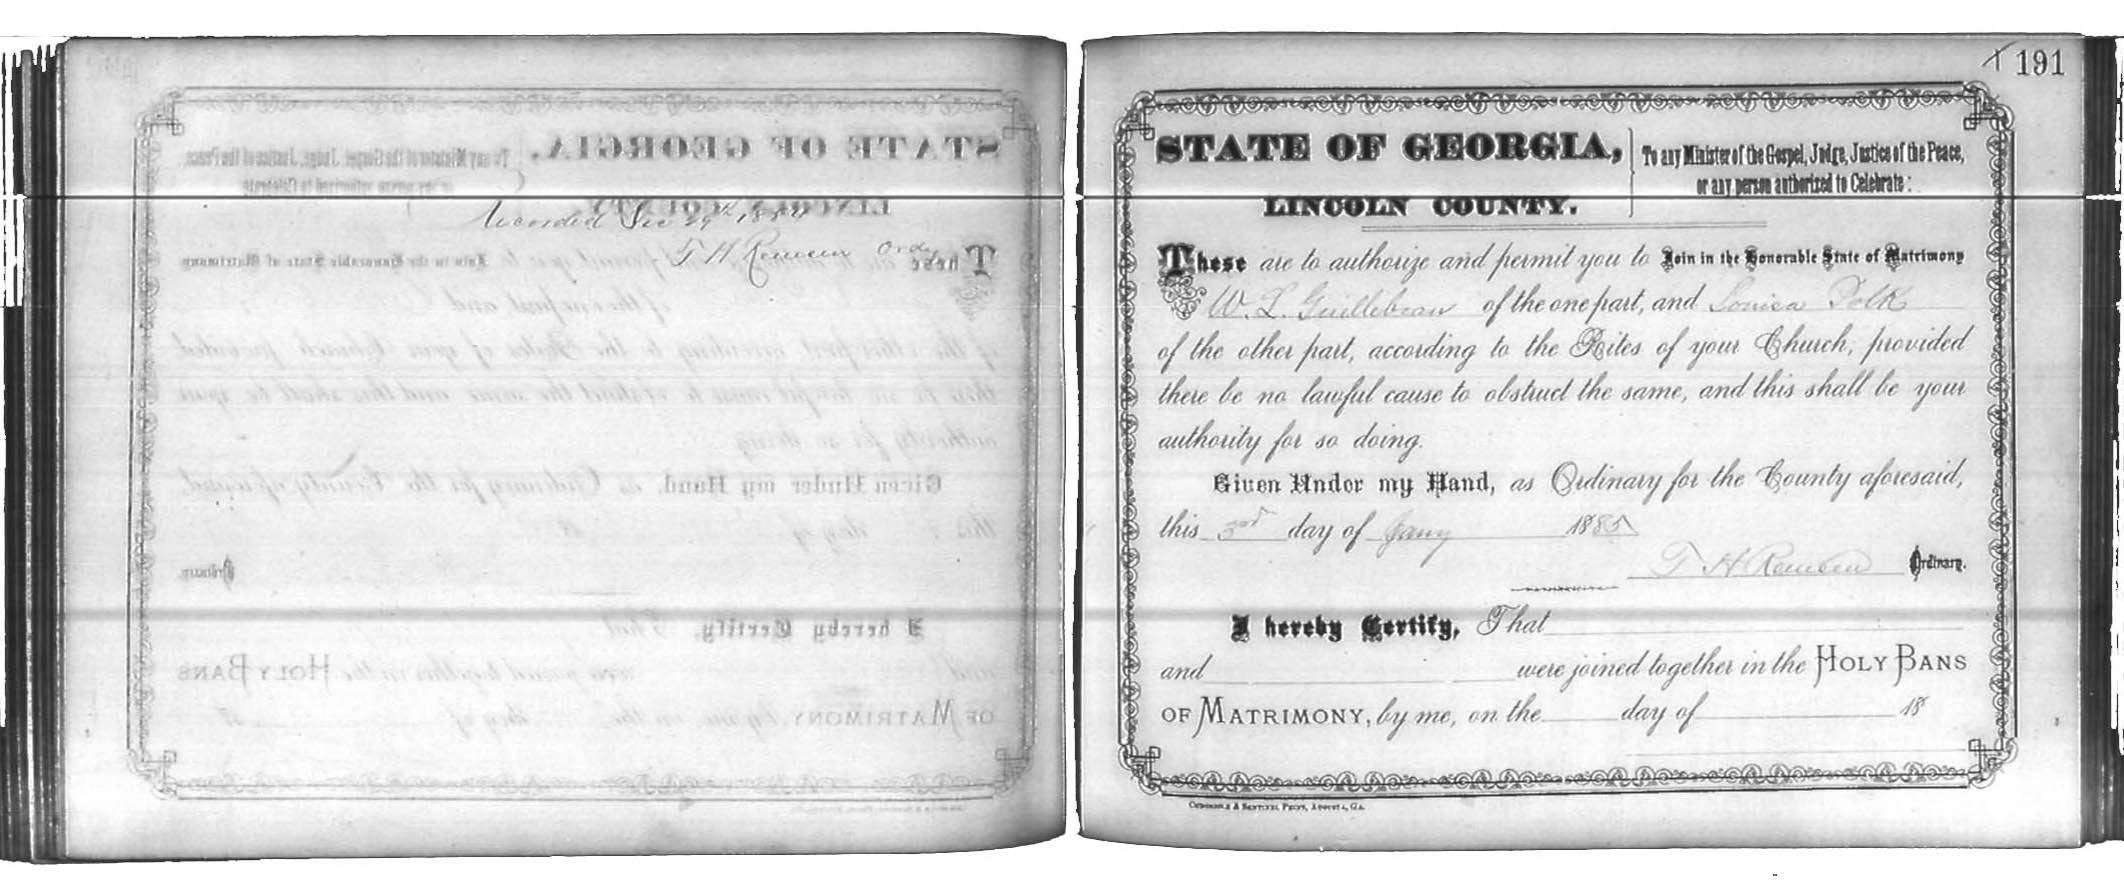 Recorded Dec 29th 1884
T H Remsen Ordy
191
STATE OF GEORGIA,
LINCOLN COUNTY.
To any Minister of the Gospel, Judge, Justice of the Peace,
or any person authorized to Celebrate:
These are to authorize and permit you to Join in the Honorable State of Matrimony
W. L. Guillebeau of the one part, and Louisa Polk
of the other part, according to the Rites of your Church, provided
there be no lawful cause to obstruct the same, and this shall be your
authority for so doing.
Given Under my Hand, as Ordinary for the County aforesaid,
this 3rd day of Jany 1885
T H Remsen Ordinary.
I hereby Certify, That
and were joined together in the HOLY BANS
OF MATRIMONY, by me, on the day of 18
CHRONICLE & SENTINEL PRINT, AUGUSTA, GA.